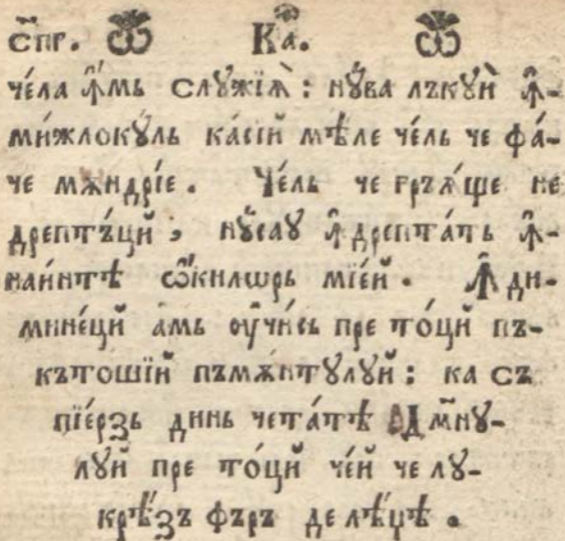 с҃пр. Ка҃.
че́ла ꙟ҆́мь слꙋжі́ѧ̀: нꙋ́ва лъкꙋѝ ꙟ҆-
ми́жлокꙋ́ль ка́сїй мѣ́ле че́ль че фа́-
че мѫндрі́е. Че́ль че гръѧ́ще не
дрептъ́ций, нꙋ́саꙋ ꙟ҆дрепта́ть ꙟ҆-
наи́нтѣ ѡ҆́килѡрь мїе́й. Ꙟ҆ди-
мине́ций а́мь оу҆чи́сь пре то́ций пъ-
кътошїй пъмѫ́нтꙋлꙋй: ка съ
пїе́рзь динь чета́тѣ Дм҃нꙋ-
лꙋй пре то́ций че́й че лꙋ-
крѣ́зъ фъръ де лѣ́џѣ.